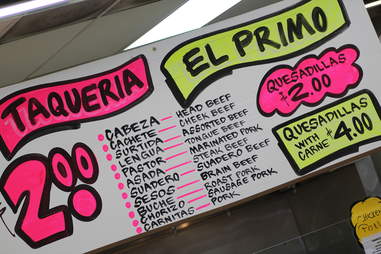 TAQUERIA
EL PRIMO
$2.00
CABEZA — HEAD BEEF
CACHETE — CHEEK BEEF
SURTIDA — ASSORTED BEEF
LENGUA — TONGUE BEEF
PASTOR — MARINATED PORK
ASADA — STEAK BEEF
SUADERO — SUADERO BEEF
SESOS — BRAIN BEEF
BUCHE — ROAST PORK
CHORIZO — SAUSAGE PORK
CARNITAS — PORK
QUESADILLAS
$2.00
QUESADILLAS
WITH
CARNE $4.00